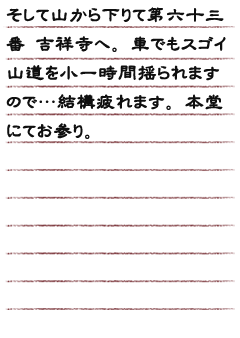 そして山から下りて第六十三
番 吉祥寺へ。車でもスゴイ
山道を小一時間揺られます
ので…結構疲れます。本堂
にてお参り。